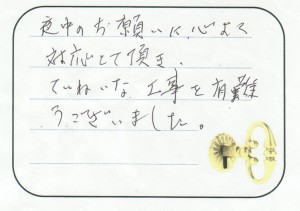 夜中のお願いに心よく
対応して頂き、
ていねいな工事を有難
うございました。